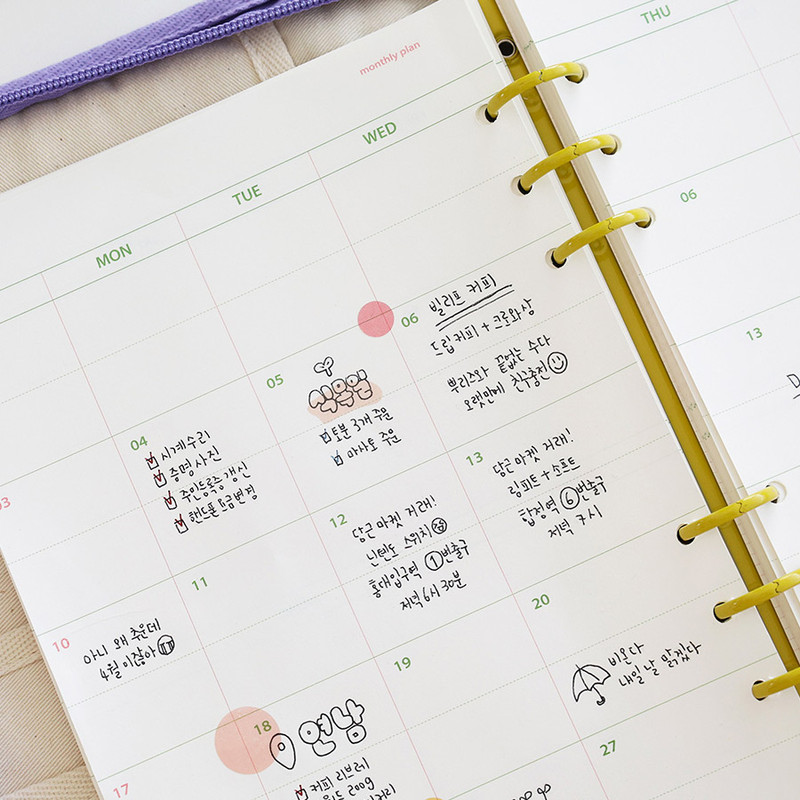 monthly plan
MON
TUE
WED
THU
04
시계수리
증명사진
주민등록증 갱신
핸드폰 요금변경
05
식물원
토분 3개 주문
마사토 주문
06
빌리프 커피
드립커피 + 크로와상
뿌리즈와 끝없는 수다
오랫만에 친구충전
06
10
아니 왜 추운데
4월이잖아
11
12
당근마켓 거래!
닌텐도 스위치
홍대입구역 1번출구
저녁 6시 30분
13
당근마켓 거래!
링피트 + 소프트
합정역 6번출구
저녁 7시
13
17
18
연남
커피 리브레
200g
19
20
비온다
내일 날 맑겠다
27